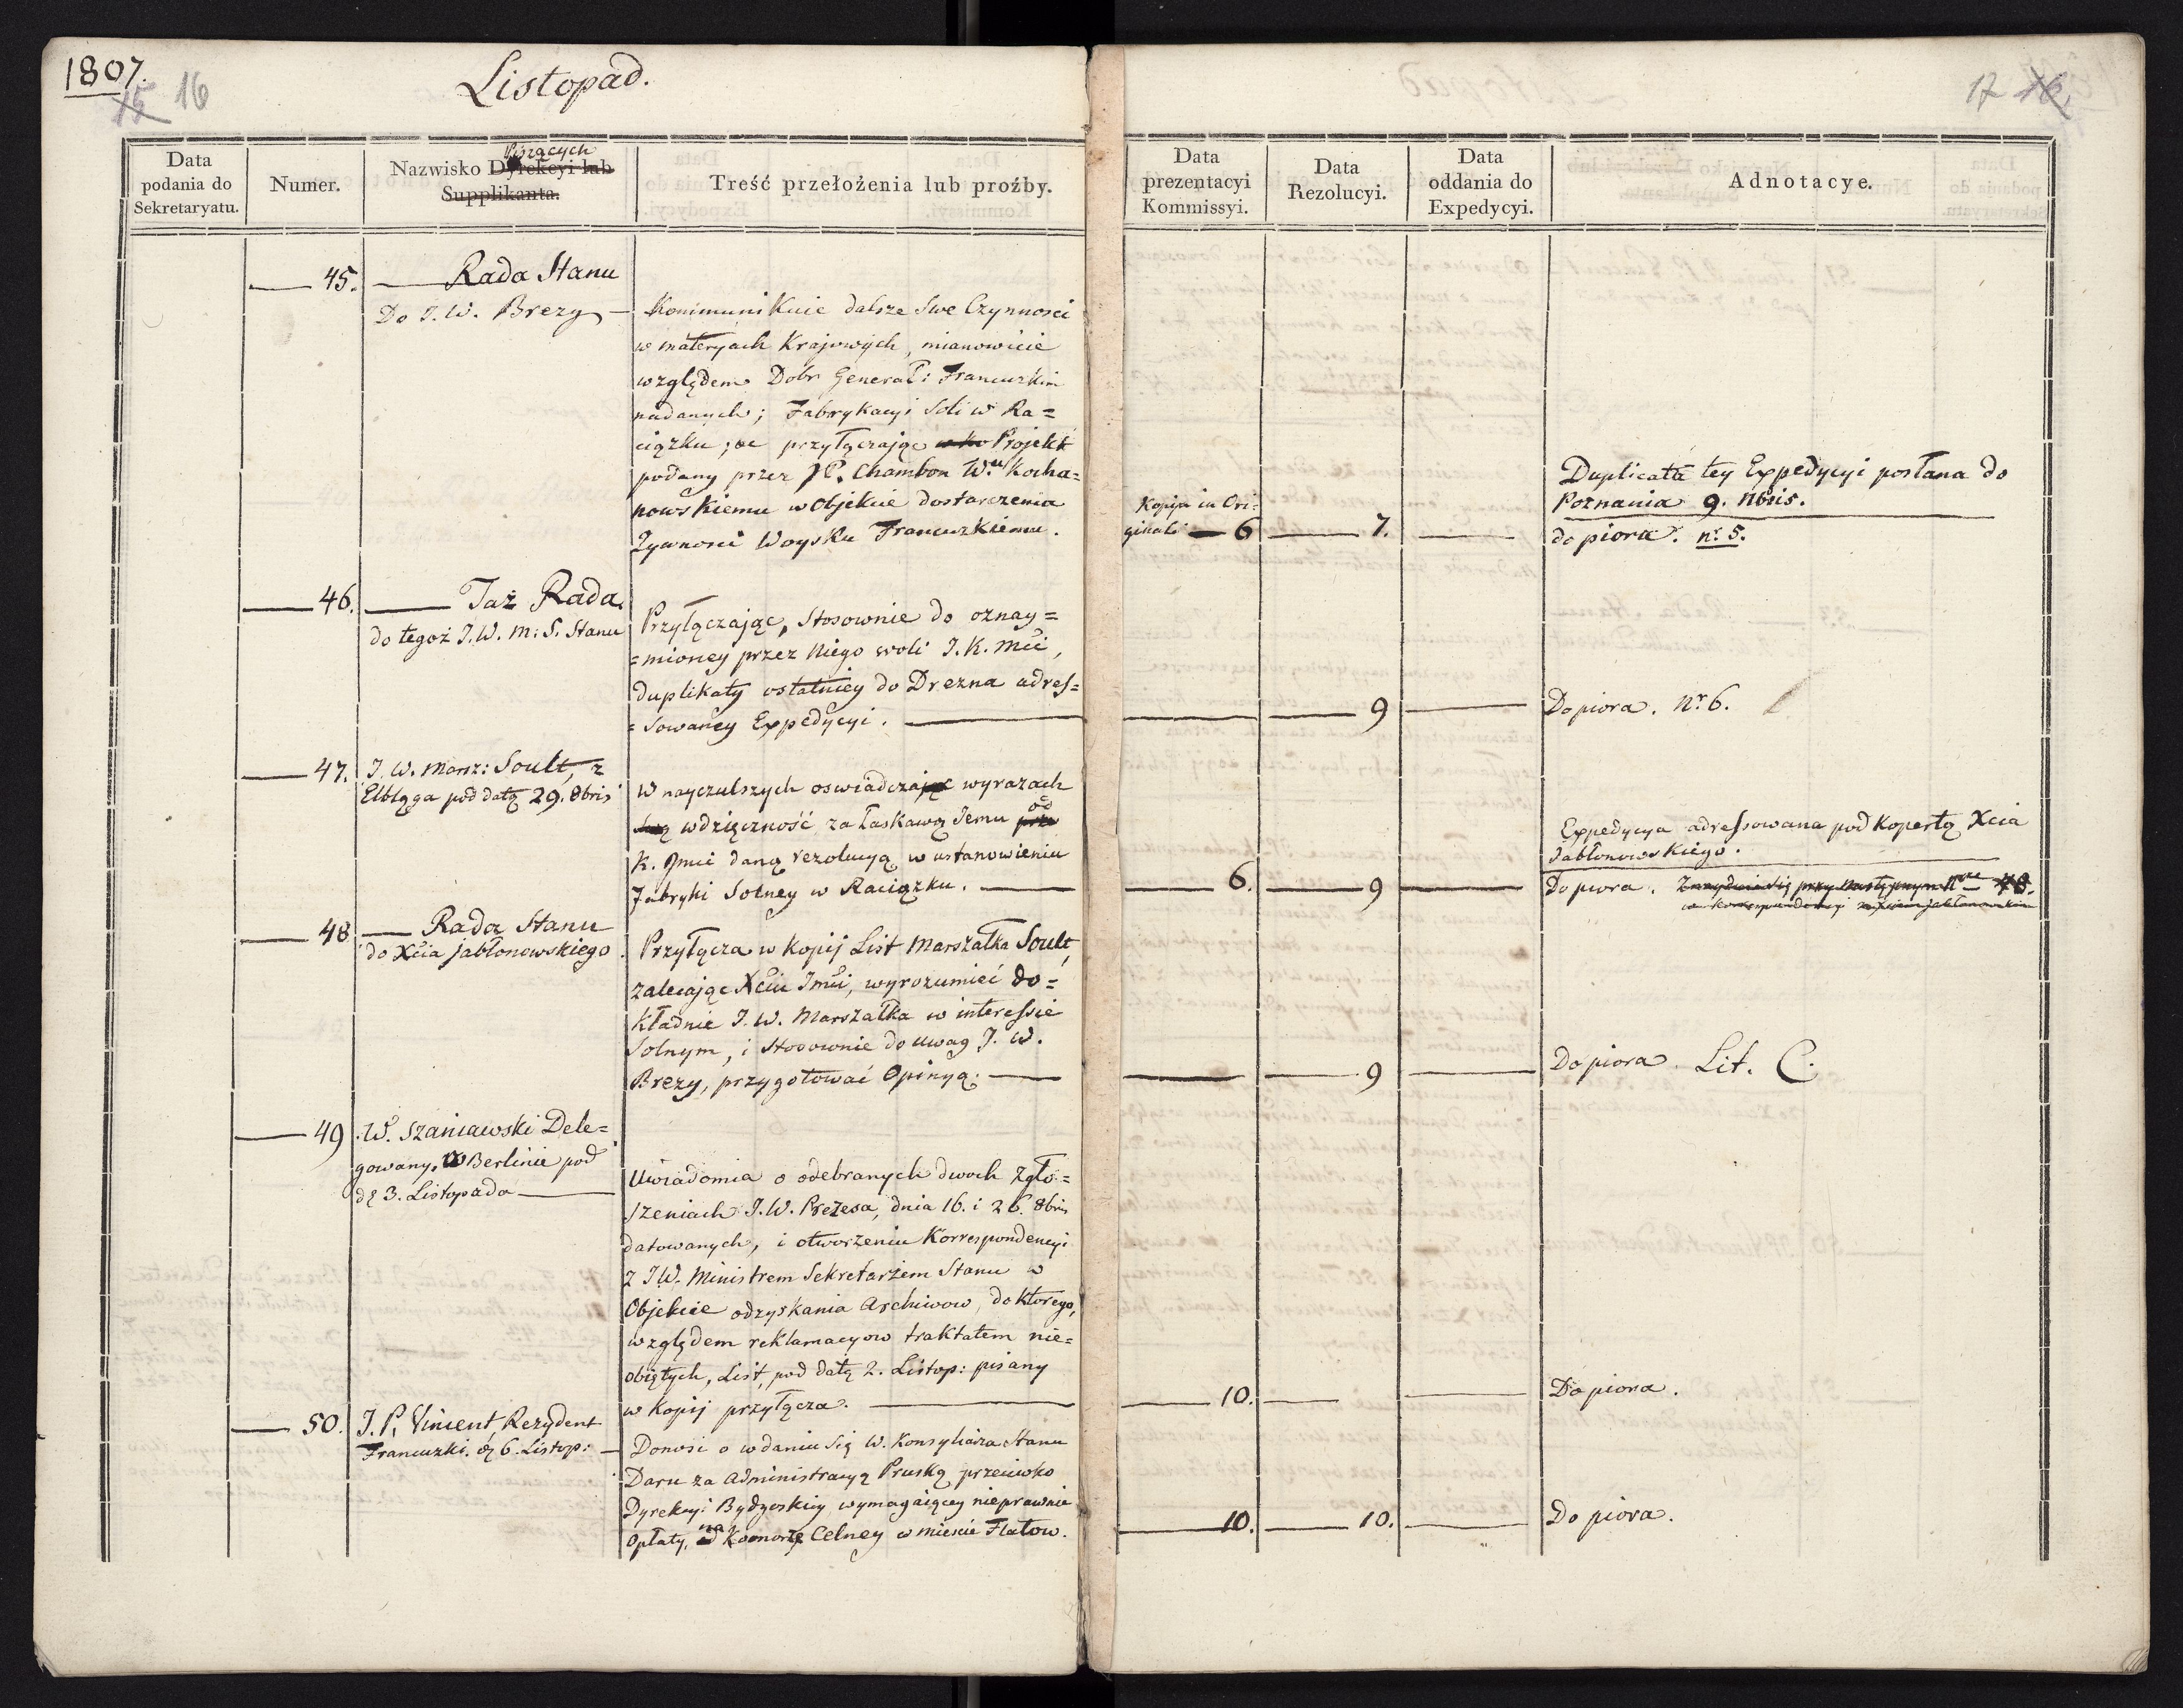 1807.
15 16
Listopad.
17 16
Data podania do Sekretaryatu.
Numer.
Piszących
Nazwisko Dyrekcyi lub Supplikanta.
Treść przełożenia lub proźby.
Data prezentacyi Kommissyi.
Data Rezolucyi.
Data oddania do Expedycyi.
Adnotacye.
45.
Rada Stanu
Do J. W. Brezy
Kommunikuie dalsze swe Czynnosci
w materyach Krajowych, mianowicie
względem Dobr Generał: Francuzkim
nadanych; Fabrykacyi Soli w Ra=
ciązku; oc przyłączając Projekt
podany przez JP. Chambon W.u Kocha=
nowskiemu w Objekcie dostarczenia
Zywnosci Woysku Francuzkiemu.
Kopija in Ori:
ginali — 6
7.
Duplicata tey Expedycyi posłana do
Poznania 9. Nbris.
do piora. nr. 5.
46.
Taż Rada
do tegoż J. W. M: S. Stanu
Przyłączając, Stosownie do oznay=
=mioney przez Niego woli J. K. Mci,
duplikaty ostatniey do Drezna adres=
=sowaney Expedycyi.
9
Do piora. Nr. 6.
47.
J. W. Marsz: Soult, z
Elbląga pod datą 29. 8bris
W nayczulszych oswiadczając wyrazach
swą wdzięczność za łaskawą Jemu prze od
K. Jmci daną rezolucyą w ustanowieniu
Fabryki Solney w Raciązku.
6.
9
Expedycya adressowana pod Kopertą Xcia
Jabłonowskiego.
Do piora. Znayduie się przy następnym Nrze 48.
w korrespondencyi z Xciem Jabłonowskim
48
Rada Stanu
do Xcia Jabłonowskiego.
Przyłącza w Kopij List Marszałka Soult,
zalecając Xciu Jmci, wyrozumieć do=
kładnie J. W. Marszałka w interessie
Solnym, i Stosownie do uwag J. W.
Brezy, przygotować Opinyą.
9
Do piora. Lit. C.
49
W. Szaniawski Dele=
gowany. W Berlinie pod
dą 3. Listopada
Uwiadomia o odebranych dwoch zgło=
szeniach J. W. Prezesa, dnia 16. i 26. 8bris
datowanych, i otworzeniu Korrespondencyi
z JW. Ministrem Sekretarzem Stanu w
Objekcie odzyskania Archiwow, do ktorego,
względem reklamacyow traktatem nie=
obiętych, List, pod datą 2. Listop: pisany
w Kopij przyłącza.
10.
Do piora.
50.
J. P. Vincent, Rezydent
Francuzki. dą 6. Listop:
Donosi o wdaniu się W. Konsyliarza Stanu
Daru za Administracyą Pruską przeciwko
Dyrekcyi Bydgoskiey wymagaiącey nieprawnie
Opłaty, na Komorze Celney w miescie Flatow.
10.
10.
Do piora.